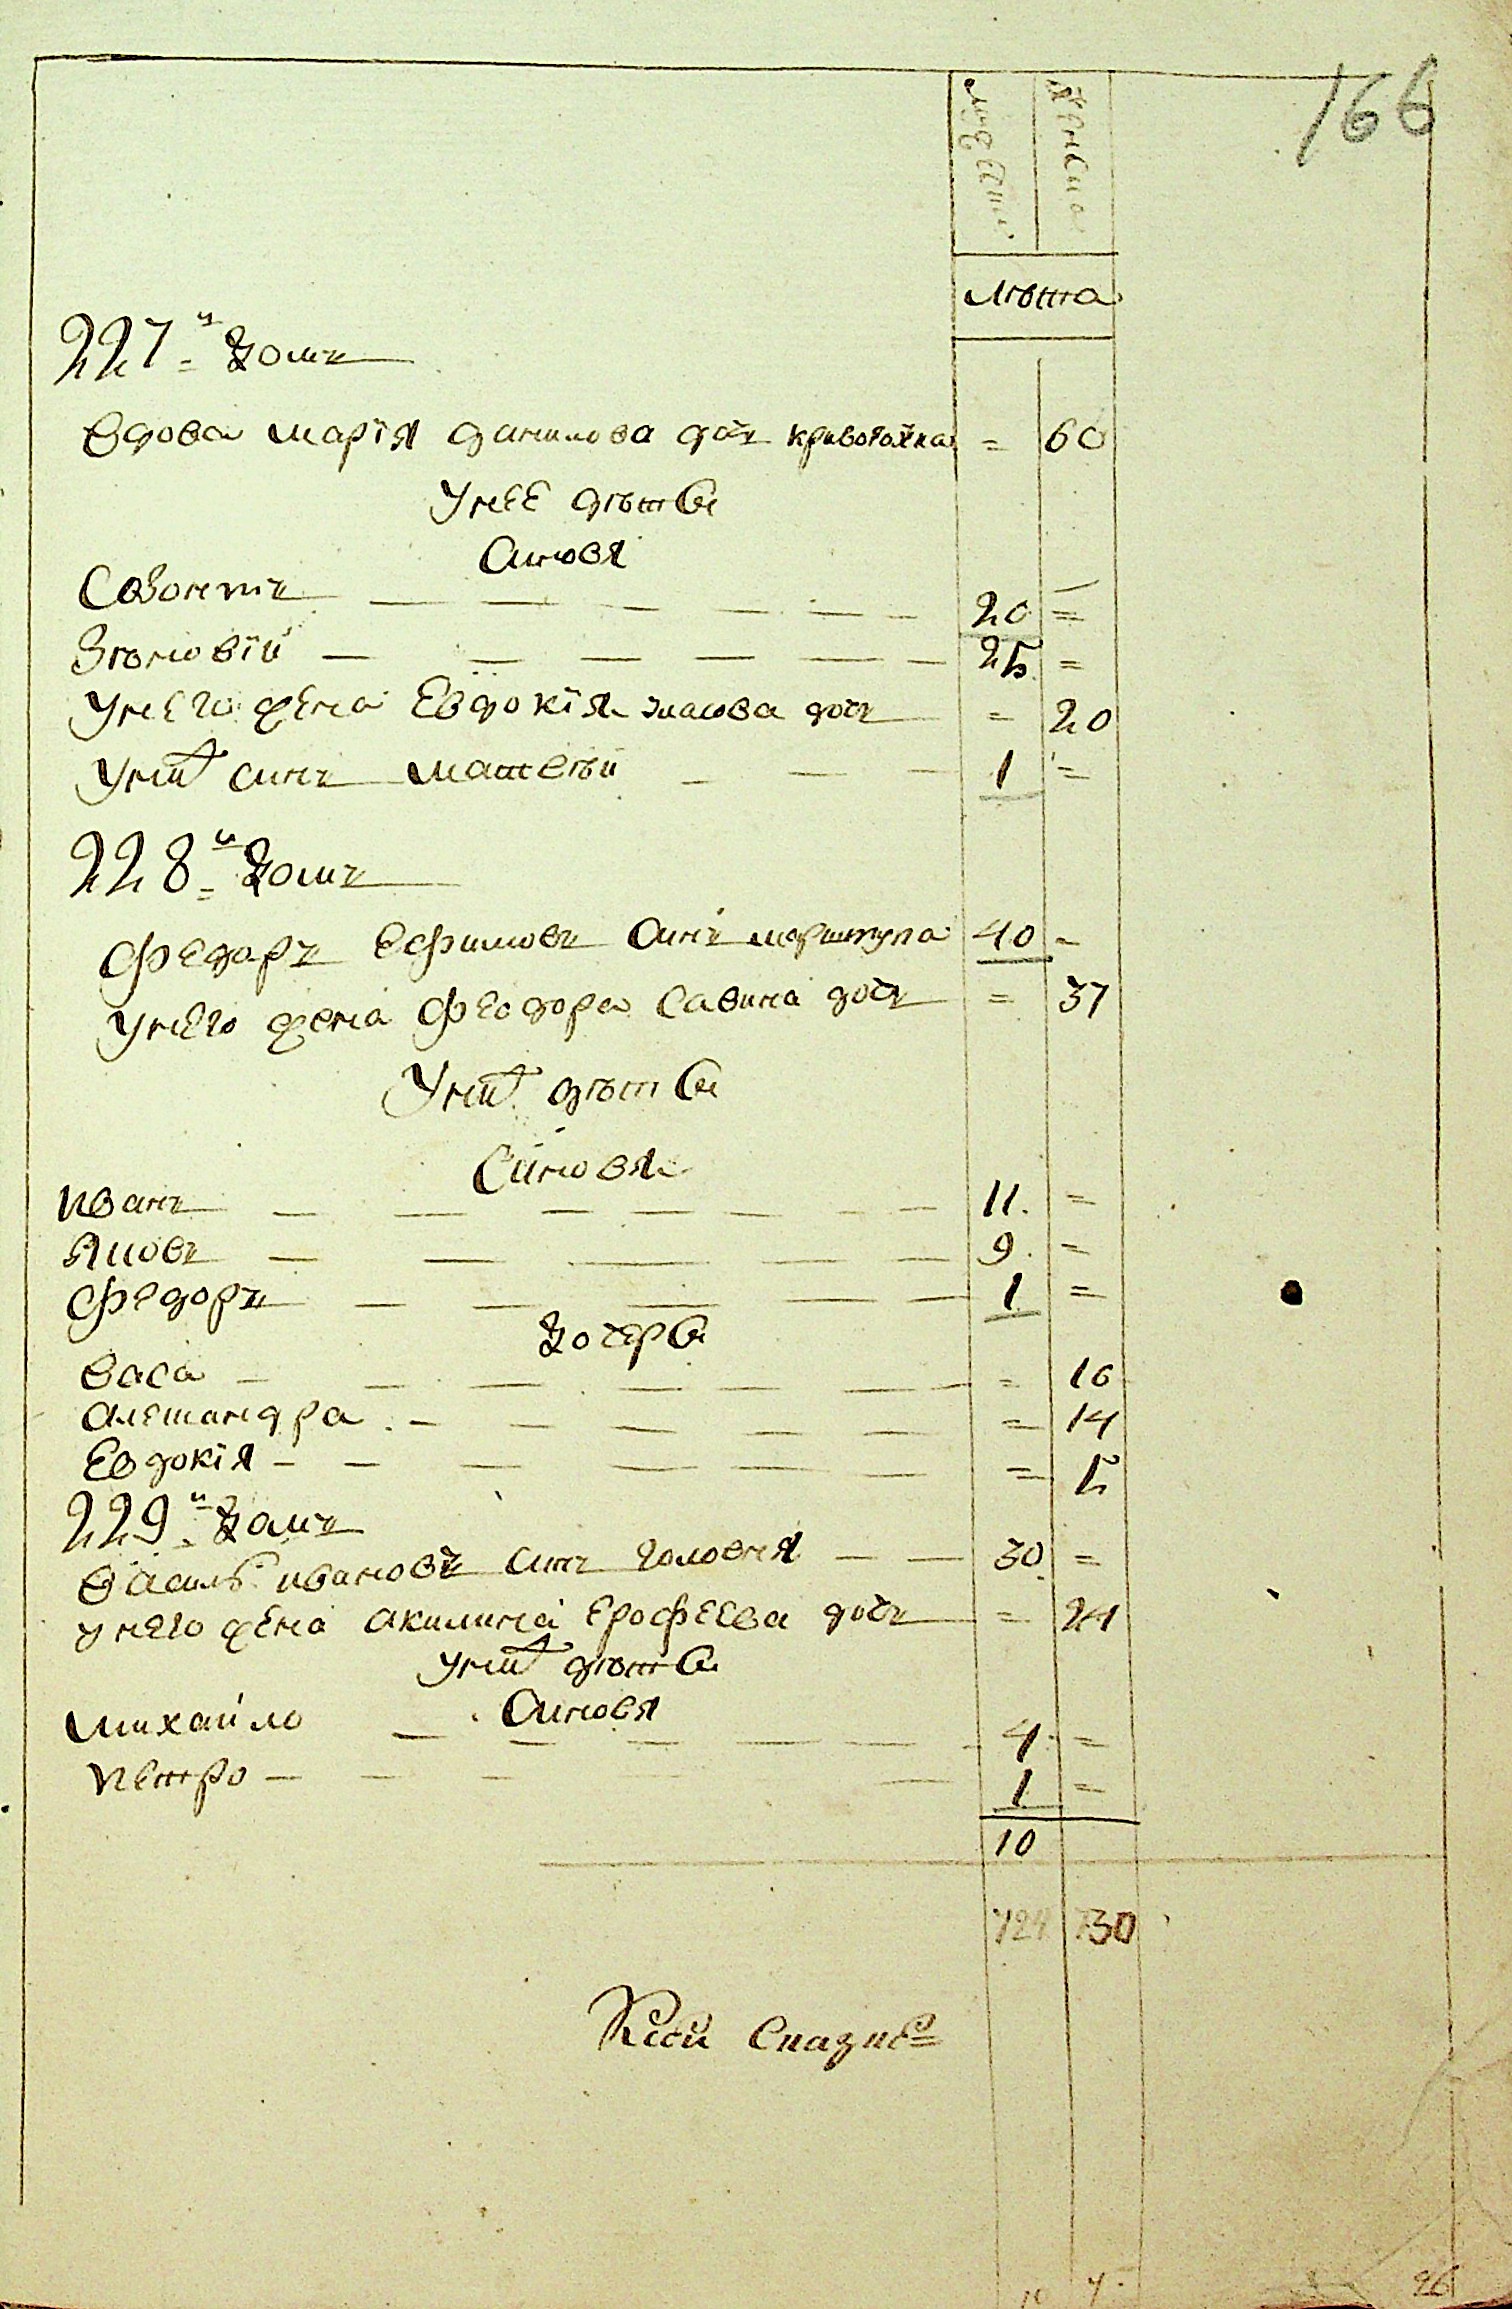 166
мужеска женска
лѣта
227й домъ
вдова марїя данилова дочъ = 60
Унее дѣтеи
Синовя
Созонтъ 20 =
Зѣновїй 25 =
Унего жена Евдокїя дочъ = 20
Унихъ синъ матвѣй 1 =
228й домъ
Федоръ ефимовъ синъ 40 =
Унего жена Феодора Савина дочъ = 37
Унихъ дѣтеи
Синовя
иванъ 11 =
Яковъ 9 =
Федоръ 1 =
дочери
васа = 16
алеѯандра = 14
Евдокїя = 5
229й домъ
василь ивановъ синъ головня 30 =
унего жена акилина Ерофеева дочъ = 24
унихъ дѣтеи
Синовя
михайло 4 =
петро 1 =
10
724 730